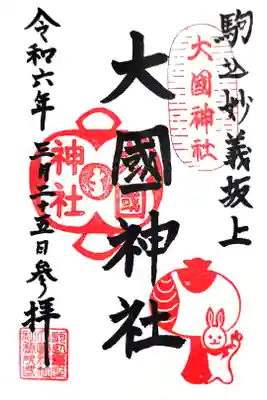 駒込妙義坂上
大國神社
大國神社
大國神社
令和六年三月二十五日参拝